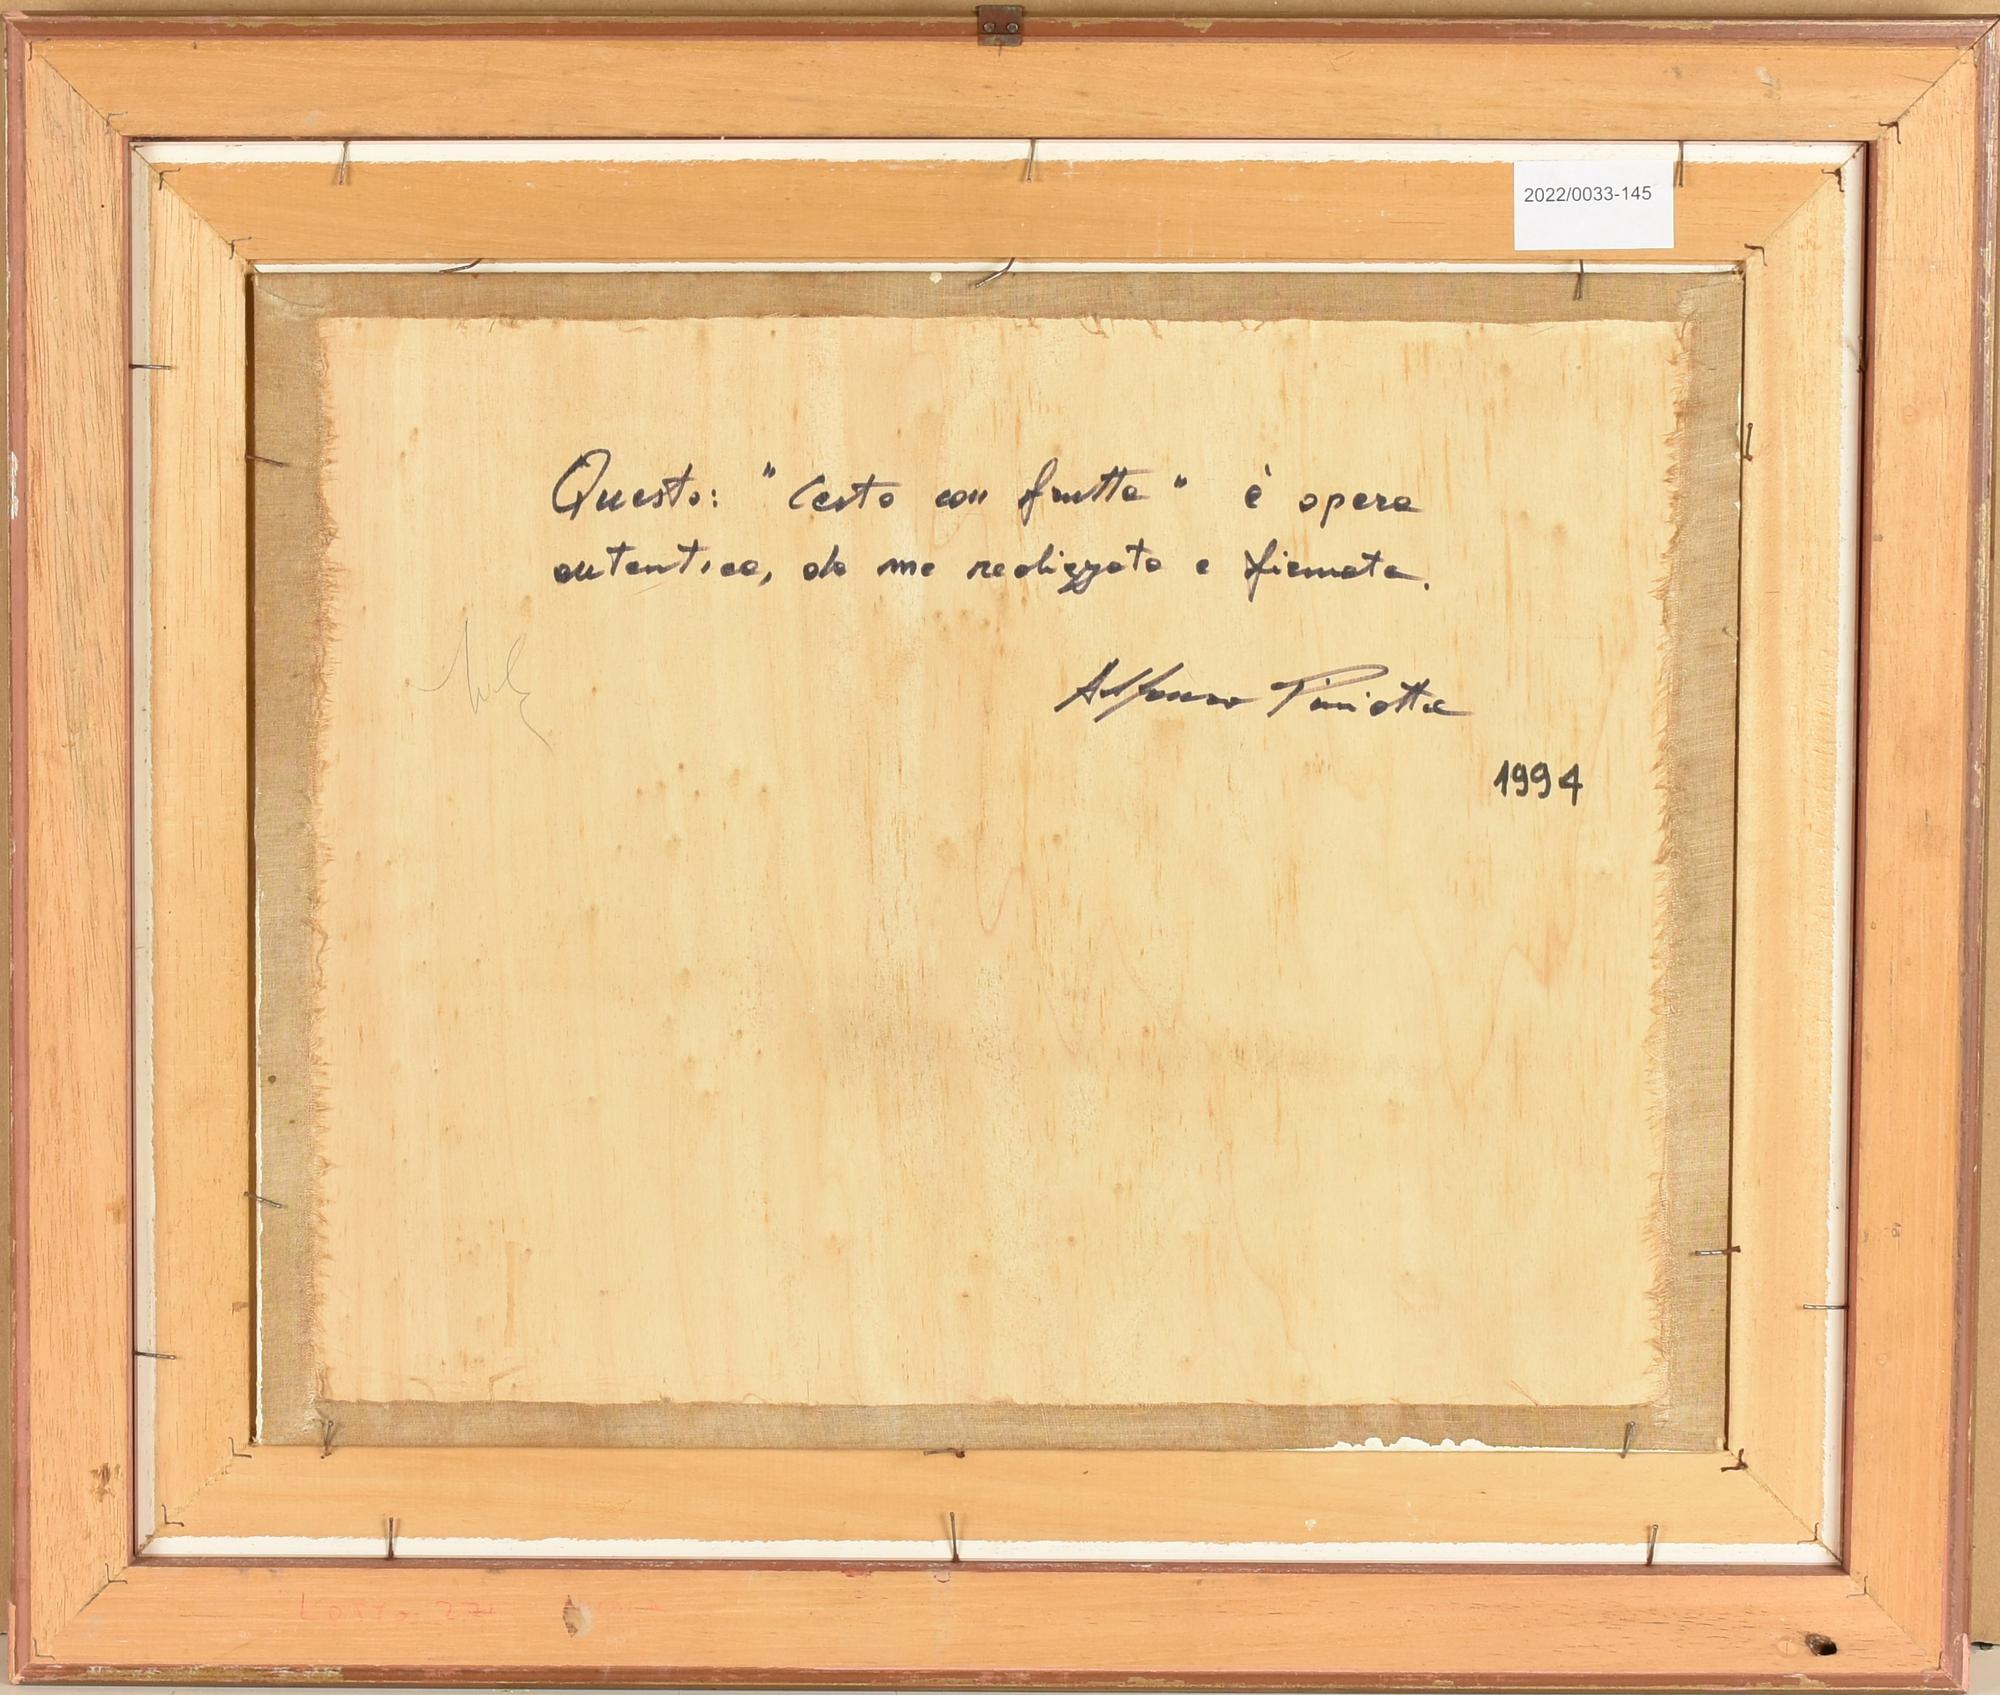 2022/0033-145
Questo: "Cesto con frutta" è opera
autentica, da me realizzata e firmata.
Alfonso
1994
Lotto